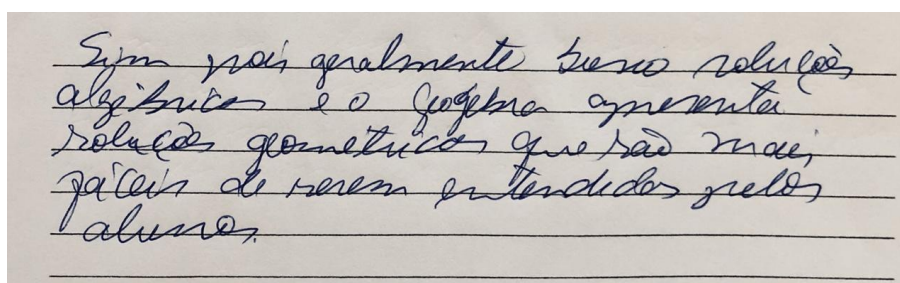 Sim pois geralmente busco soluções
algébricas e o Geogebra apresenta
soluções geométricas que são mais
fáceis de serem entendidas pelos
alunos.